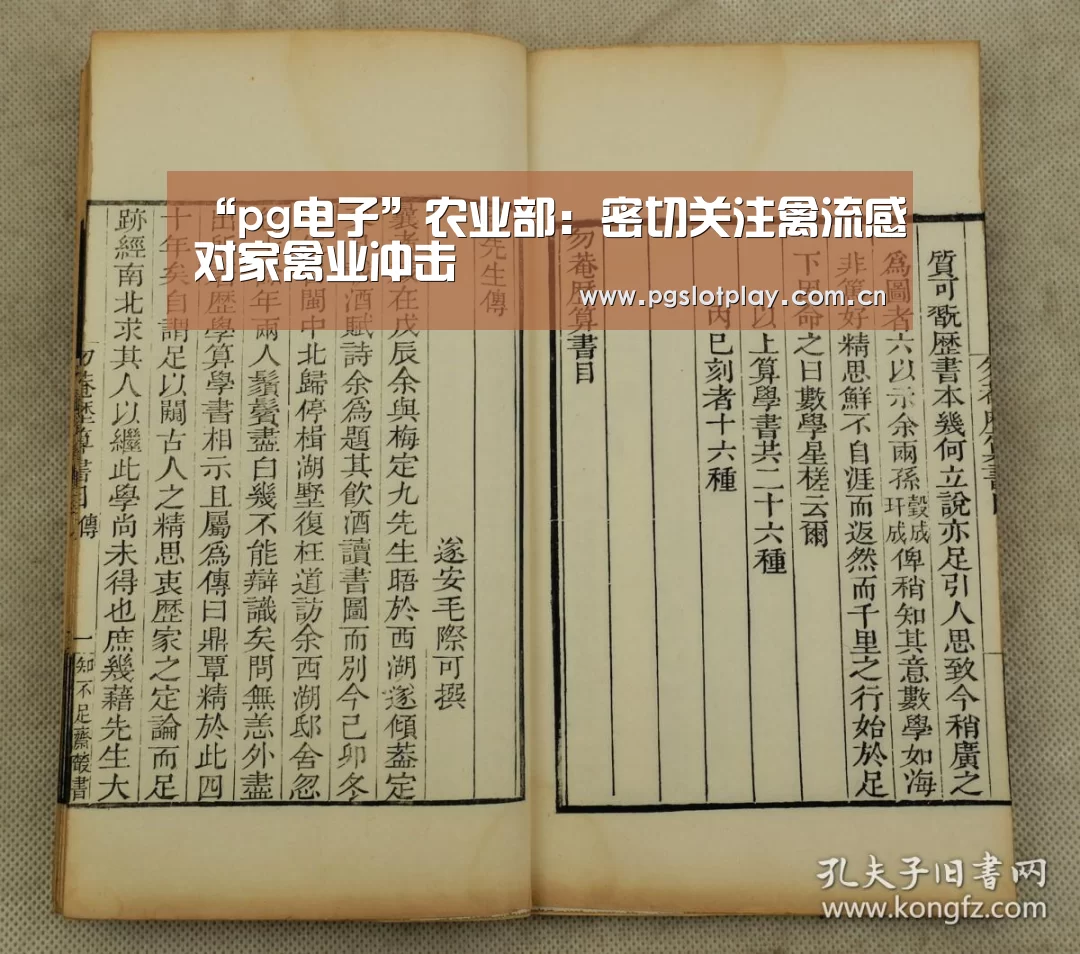 “pg电子”农业部：密切关注禽流感
对家禽业冲击
www.pgslotplay.com.cn
質可翫歴書本幾何立說亦足引人思致今稍廣之
爲圖者六以示余兩孫瑴成玕成俾稍知其意數學如海
非篤好精思鮮不自涯而返然而千里之行始於足
下因命之曰數學星槎云爾
以上算學書共二十六種
內已刻者十六種
勿菴歴算書目
先生傳
遂安毛際可撰
在戊辰余與梅定九先生晤於西湖遂傾葢定
酒賦詩余爲題其飲酒讀書圖而別今己卯冬
閩中北歸停楫湖墅復枉道訪余西湖邸舍忽
年兩人鬚鬢盡白幾不能辯識矣問無恙外盡
出歴學算學書相示且屬爲傳曰鼎覃精於此四
十年矣自謂足以闢古人之精思衷歴家之定論而足
跡經南北求其人以繼此學尚未得也庶幾藉先生大
勿菴歴算書目 傳
一 知不足齋叢書
孔夫子旧书网
www.kongfz.com